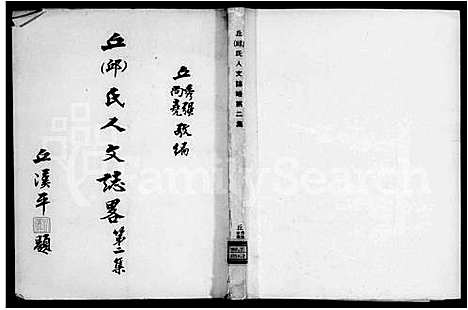 丘秀強
尚堯
敬編
丘(邱)氏人文誌畧第二集
丘漢平題
丘(邱)氏人文誌略第二集
丘
FamilySearch